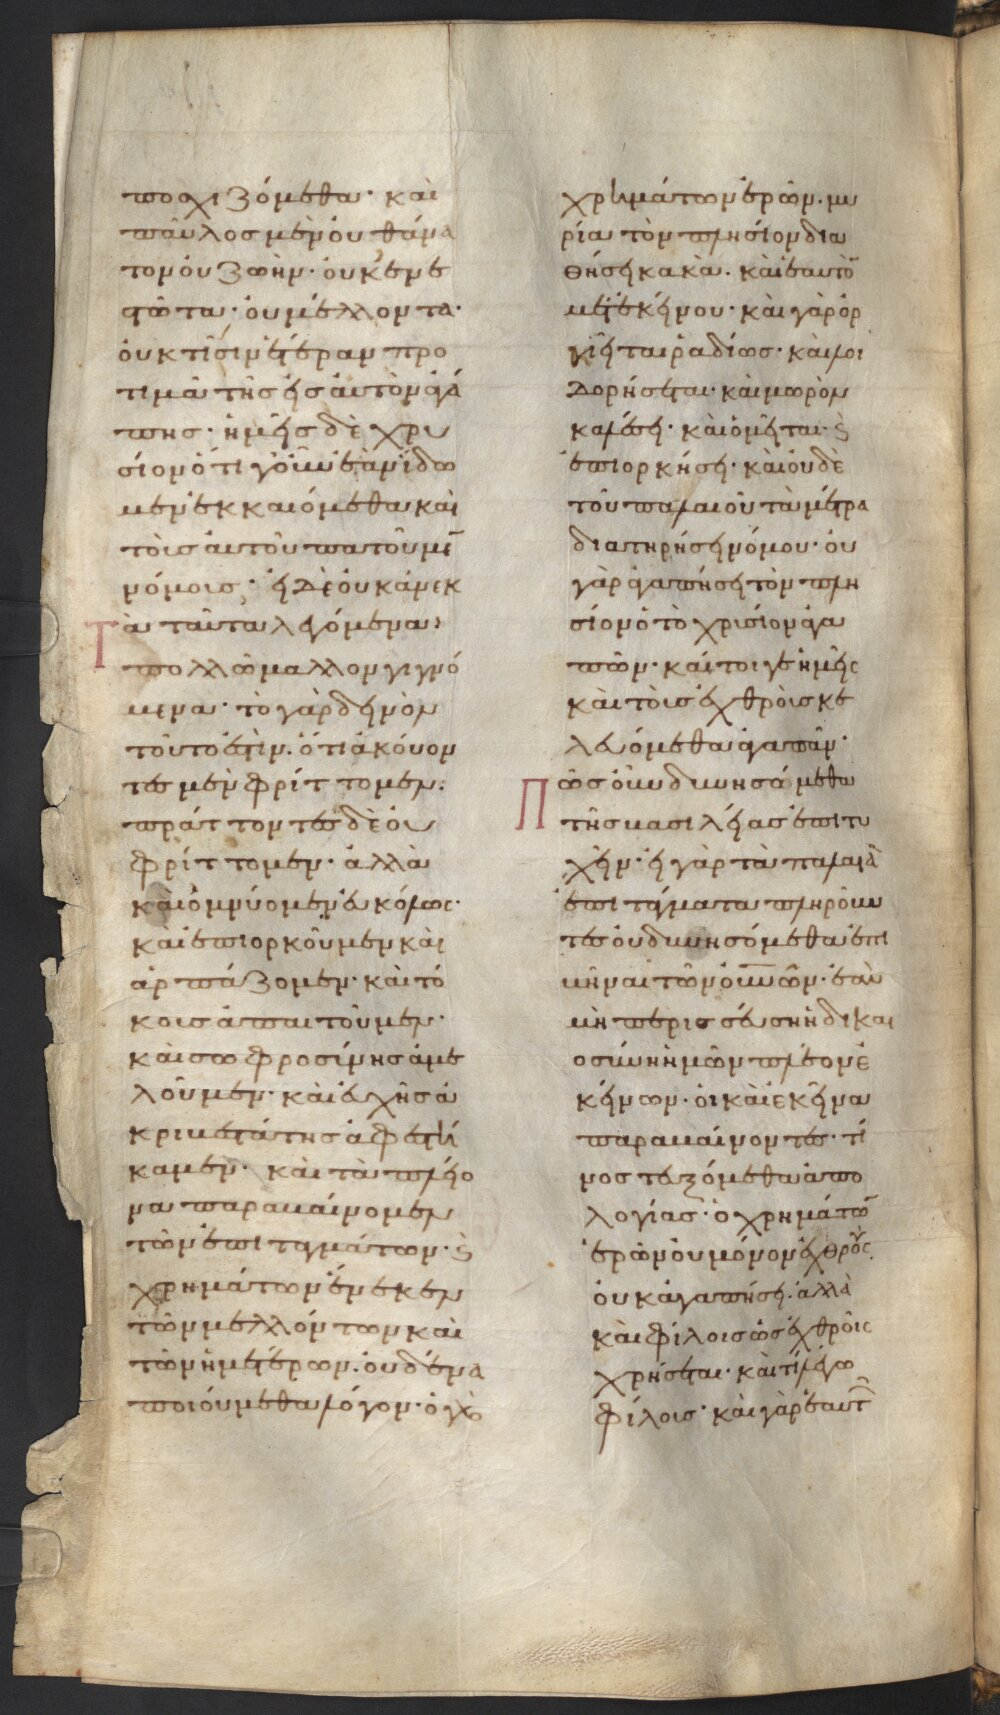 ποσχιζόμεθα· καὶ
παῦλος μὲν οὐ θάνα
τον οὐ ζωὴν· οὐκ ἐνε
στῶτα· οὐ μέλλοντα·
οὐ κτίσιν ἑτέραν προ
τιμᾶ τῆς εἰς αὐτὸν ἀγά
πης· ἡμεῖς δὲ χρυ
σίον ὅτι γοῦν ἐὰν ἴδω
μεν ἐκκαιόμεθα καὶ
τοῖς αὐτοῦ πατοῦμε̄
νόμοις· εἰ δὲ οὐκ ἀνεκ
τὰ ταῦτα λεγόμενα·
πολλῶ μαλλον γιγνό
μενα· τὸ γὰρ δεινὸν
τοῦτο ἐστὶν. ὅτι ἀκούον
τες μὲν φρίττομεν·
πράττοντες δὲ οὐ
φρίττομεν· ἀλλὰ
καὶ ὀμνύομεν εὐκόλως·
καὶ ἐπιορκοῦμεν καὶ
ἁρπάζομεν· καὶ τό
κους ἀπαιτοῦμεν·
καὶ σωφροσύνης ἀμε
λοῦμεν· καὶ εὐχῆς ἀ
κριβεστάτης ἀφεστή
καμεν· καὶ τὰ πλείο
να παραβαίνομεν
τῶν ἐπιταγμάτων· ϗ
χρημάτων ἕνεκεν
τῶν μελλόντων καὶ
τῶν ἡμετέρων· οὐδένα
ποιούμεθα λόγον· ὁ γὰρ
χρημάτων ἐρῶν· μυ
ρία τὸν πλησίον δια
θήσει κακὰ· καὶ ἑαυτὸ̄
μετ' ἐκείνου· καὶ γὰρ ὀρ
γιεῖται ῥαδίως· καὶ λοι
δορήσεται· καὶ μωρὸν
καλέσει· καὶ ὀμεῖται· ϗ
ἐπιορκήσει· καὶ οὐδὲ
τοῦ παλαιοῦ τὰ μέτρα
διατηρήσει νόμου· οὐ
γὰρ ἀγαπήσει τὸν πλη
σίον ὁ τὸ χρισίον ἀγα
πῶν· καίτοι γε ἡμεῖς
καὶ τοῖς ἐχθροῖς κε
λευόμεθα ἀγαπᾶν·
Πῶς οὖν δυνησόμεθα
τῆς βασιλείας ἐπιτυ
χεῖν· εἰ γὰρ τὰ παλαιὰ
ἐπιτάγματα πληροῦν
τες οὐ δυνησόμεθα ἐπι
βῆναι τῶν οὐνῶν· ἐὰν
μὴ περισσεύση ἡ δικαι
οσύνη ἡμῶν πλέον ἐ
κείνων· οἱ καὶ ἐκεῖνα
παραβαίνοντες· τί
νος τευξόμεθα ἀπο
λογίας· ὁ χρημάτω̄
ἐρῶν οὐ μόνον ἐχθροὺς
οὐκ ἀγαπήσει· ἀλλὰ
καὶ φίλοις ὡς ἐχθροῖς
χρήσεται· καὶ τί λέγω
φίλοις· καὶ γὰρ ἑαυτ